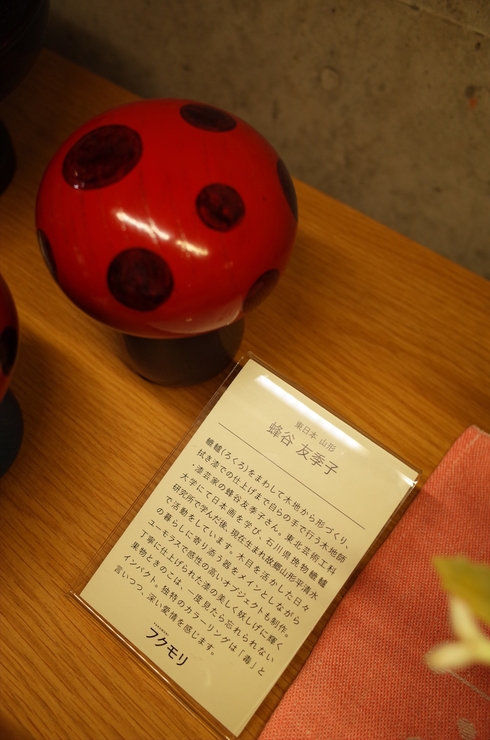 東日本 山形
蜂谷 友季子
轆轤(ろくろ)をまわして木地から形づくり、
拭き漆での仕上げまで自らの手で行う木地師
・漆芸家の蜂谷友季子さん。東北芸術工科
大学にて日本画を学び、石川県挽物轆轤
研究所で学んだ後、現在生まれ故郷山形平清水
で活動をしています。木目を活かした日々
の暮らしに寄り添う器をメインとしながら
ユーモラスで感性の高いオブジェクトも制作。
丁寧に仕上げられた漆の美しく妖しげに輝く
果物ときのこは、一度見たら忘れられない
インパクト。独特のカラーリングは「毒」と
言いつつ、深い愛情を感じます。
フクモリ